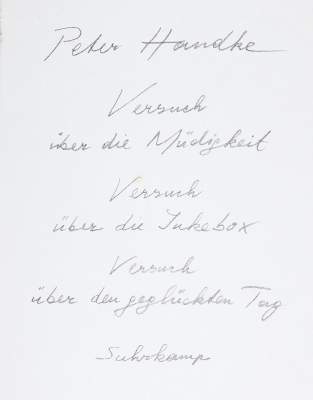 Peter Handke
Versuch
über die Müdigkeit
Versuch
über die Jukebox
Versuch
über den geglückten Tag
Suhrkamp